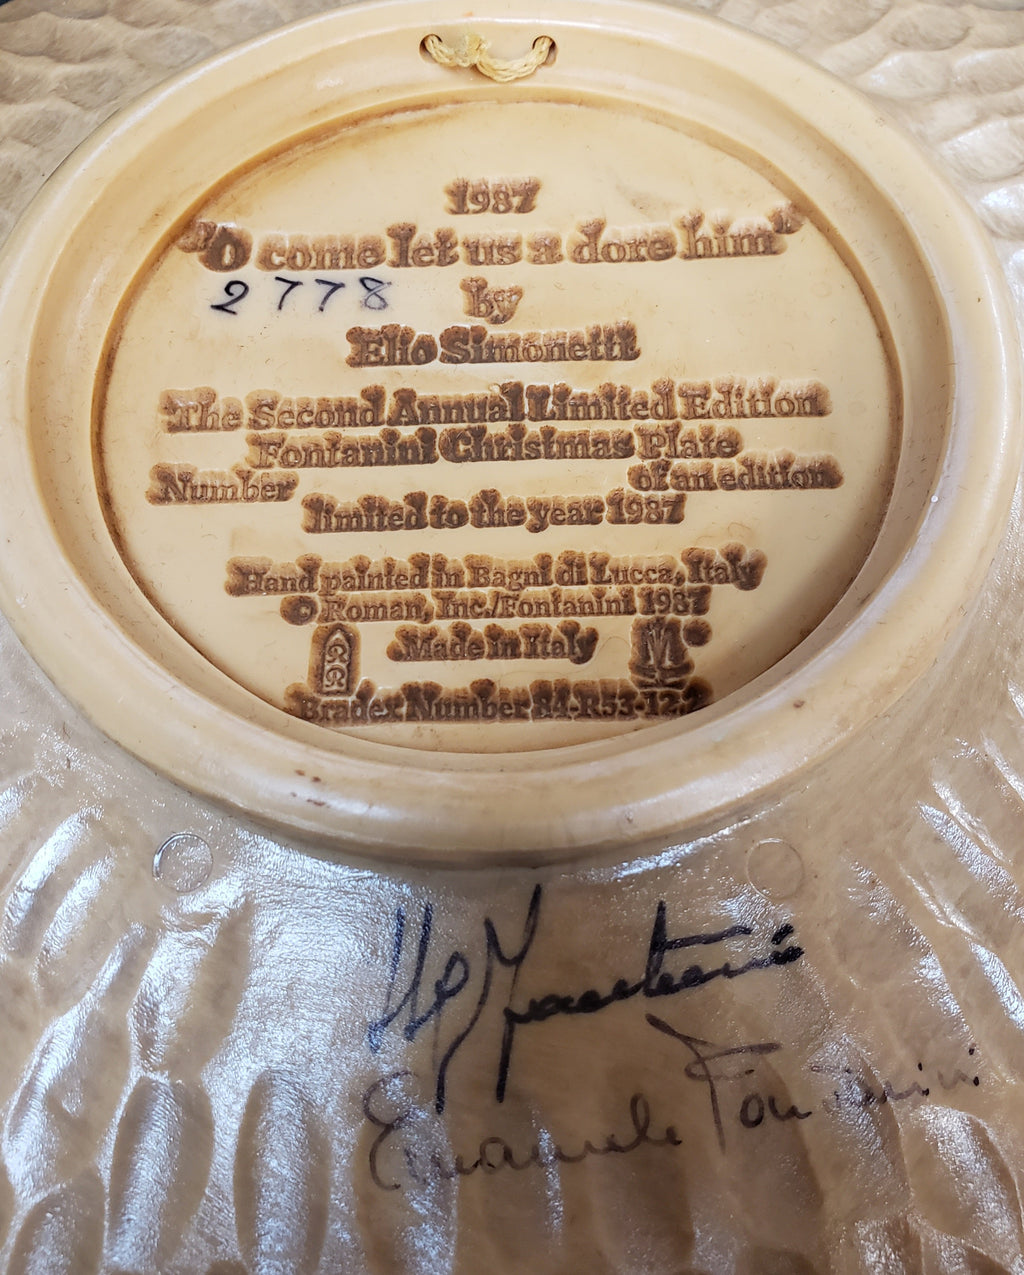 1987
"O come let us a dore him"
2778 by
Elio Simonetti
The Second Annual Limited Edition
Fontanini Christmas Plate
Number of an edition
limited to the year 1987
Hand painted in Bagni di Lucca, Italy
© Roman, Inc./Fontanini 1987
Made in Italy
Bradex Number 84-R53-12.2
Emanuele Fontanini